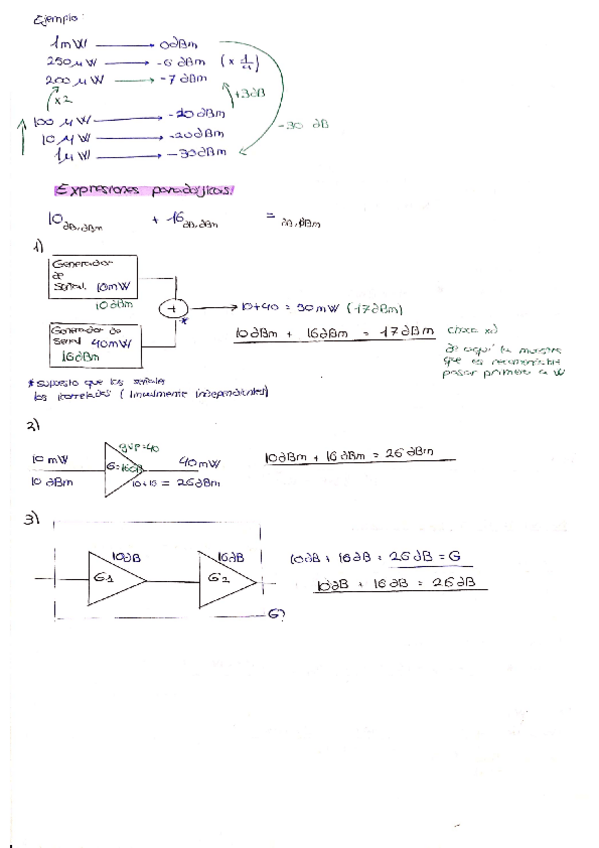 Ejemplo:
1mW → 0dBm
250 μW → -6 dBm (x 1/4)
200 μW → -7 dBm
x2
+3dB
100 μW → -10 dBm
-30 dB
10 μW → -20dBm
1μW → -30dBm
Expresiones paradójicas:
10 dB,dBm + 16 dB,dBm = dB,dBm
1)
Generador
de
señal 10mW
10dBm
+
*
10+40 = 50mW (17dBm)
Generador de
señal 40mW
16dBm
10dBm + 16dBm = 17dBm
de aquí la
que es
pasar primero a W
* supuesto que las señales
( linealmente independientes)
2)
10 mW
10 dBm
gup=40
G=16dB
40mW
10+16 = 26dBm
10dBm + 16dBm = 26dBm
3)
10dB
G1
16dB
G2
G?
10dB + 16dB = 26dB = G
10dB + 16dB = 26dB